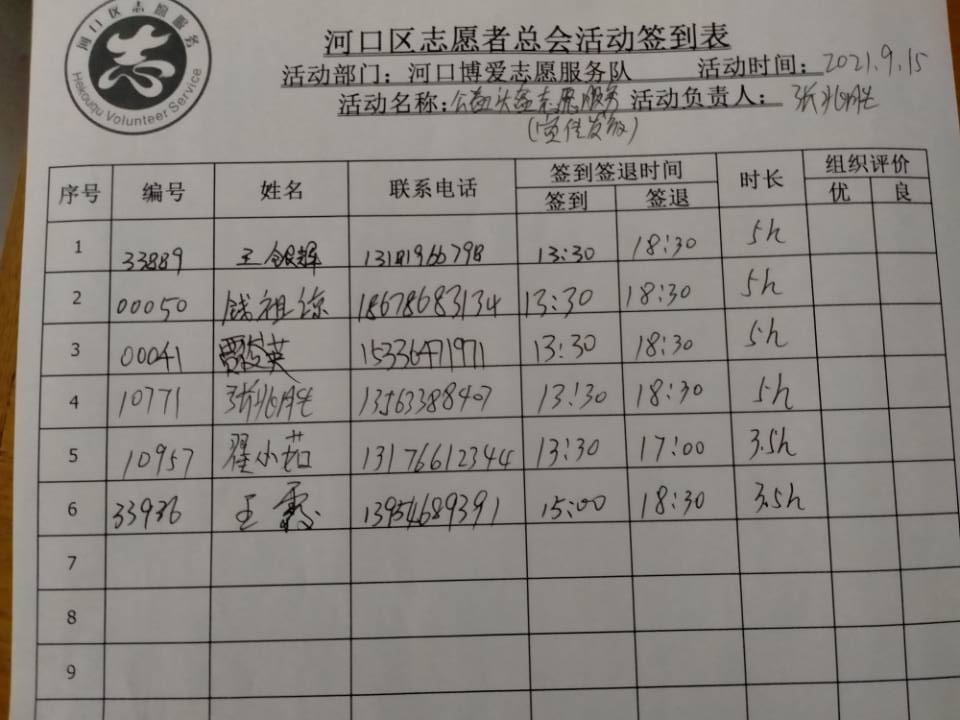 河口区志愿服务
Hekouqu Volunteer Service
志
河口区志愿者总会活动签到表
活动部门：河口博爱志愿服务队 活动时间：2021.9.15
活动名称：公益 志愿服务 活动负责人：张兆胜
(宣传发放)
序号 编号 姓名 联系电话 签到签退时间 时长 组织评价
签到 签退 优 良
1 33889 王银辉 13:30 18:30 5h
2 00050 钱祖 18678683134 13:30 18:30 5h
3 00041 英 15336471971 13:30 18:30 5h
4 10771 张兆胜 13563388407 13:30 18:30 5h
5 10957 翟小茹 13176612344 13:30 17:00 3.5h
6 33936 王 13954689391 15:00 18:30 3.5h
7
8
9